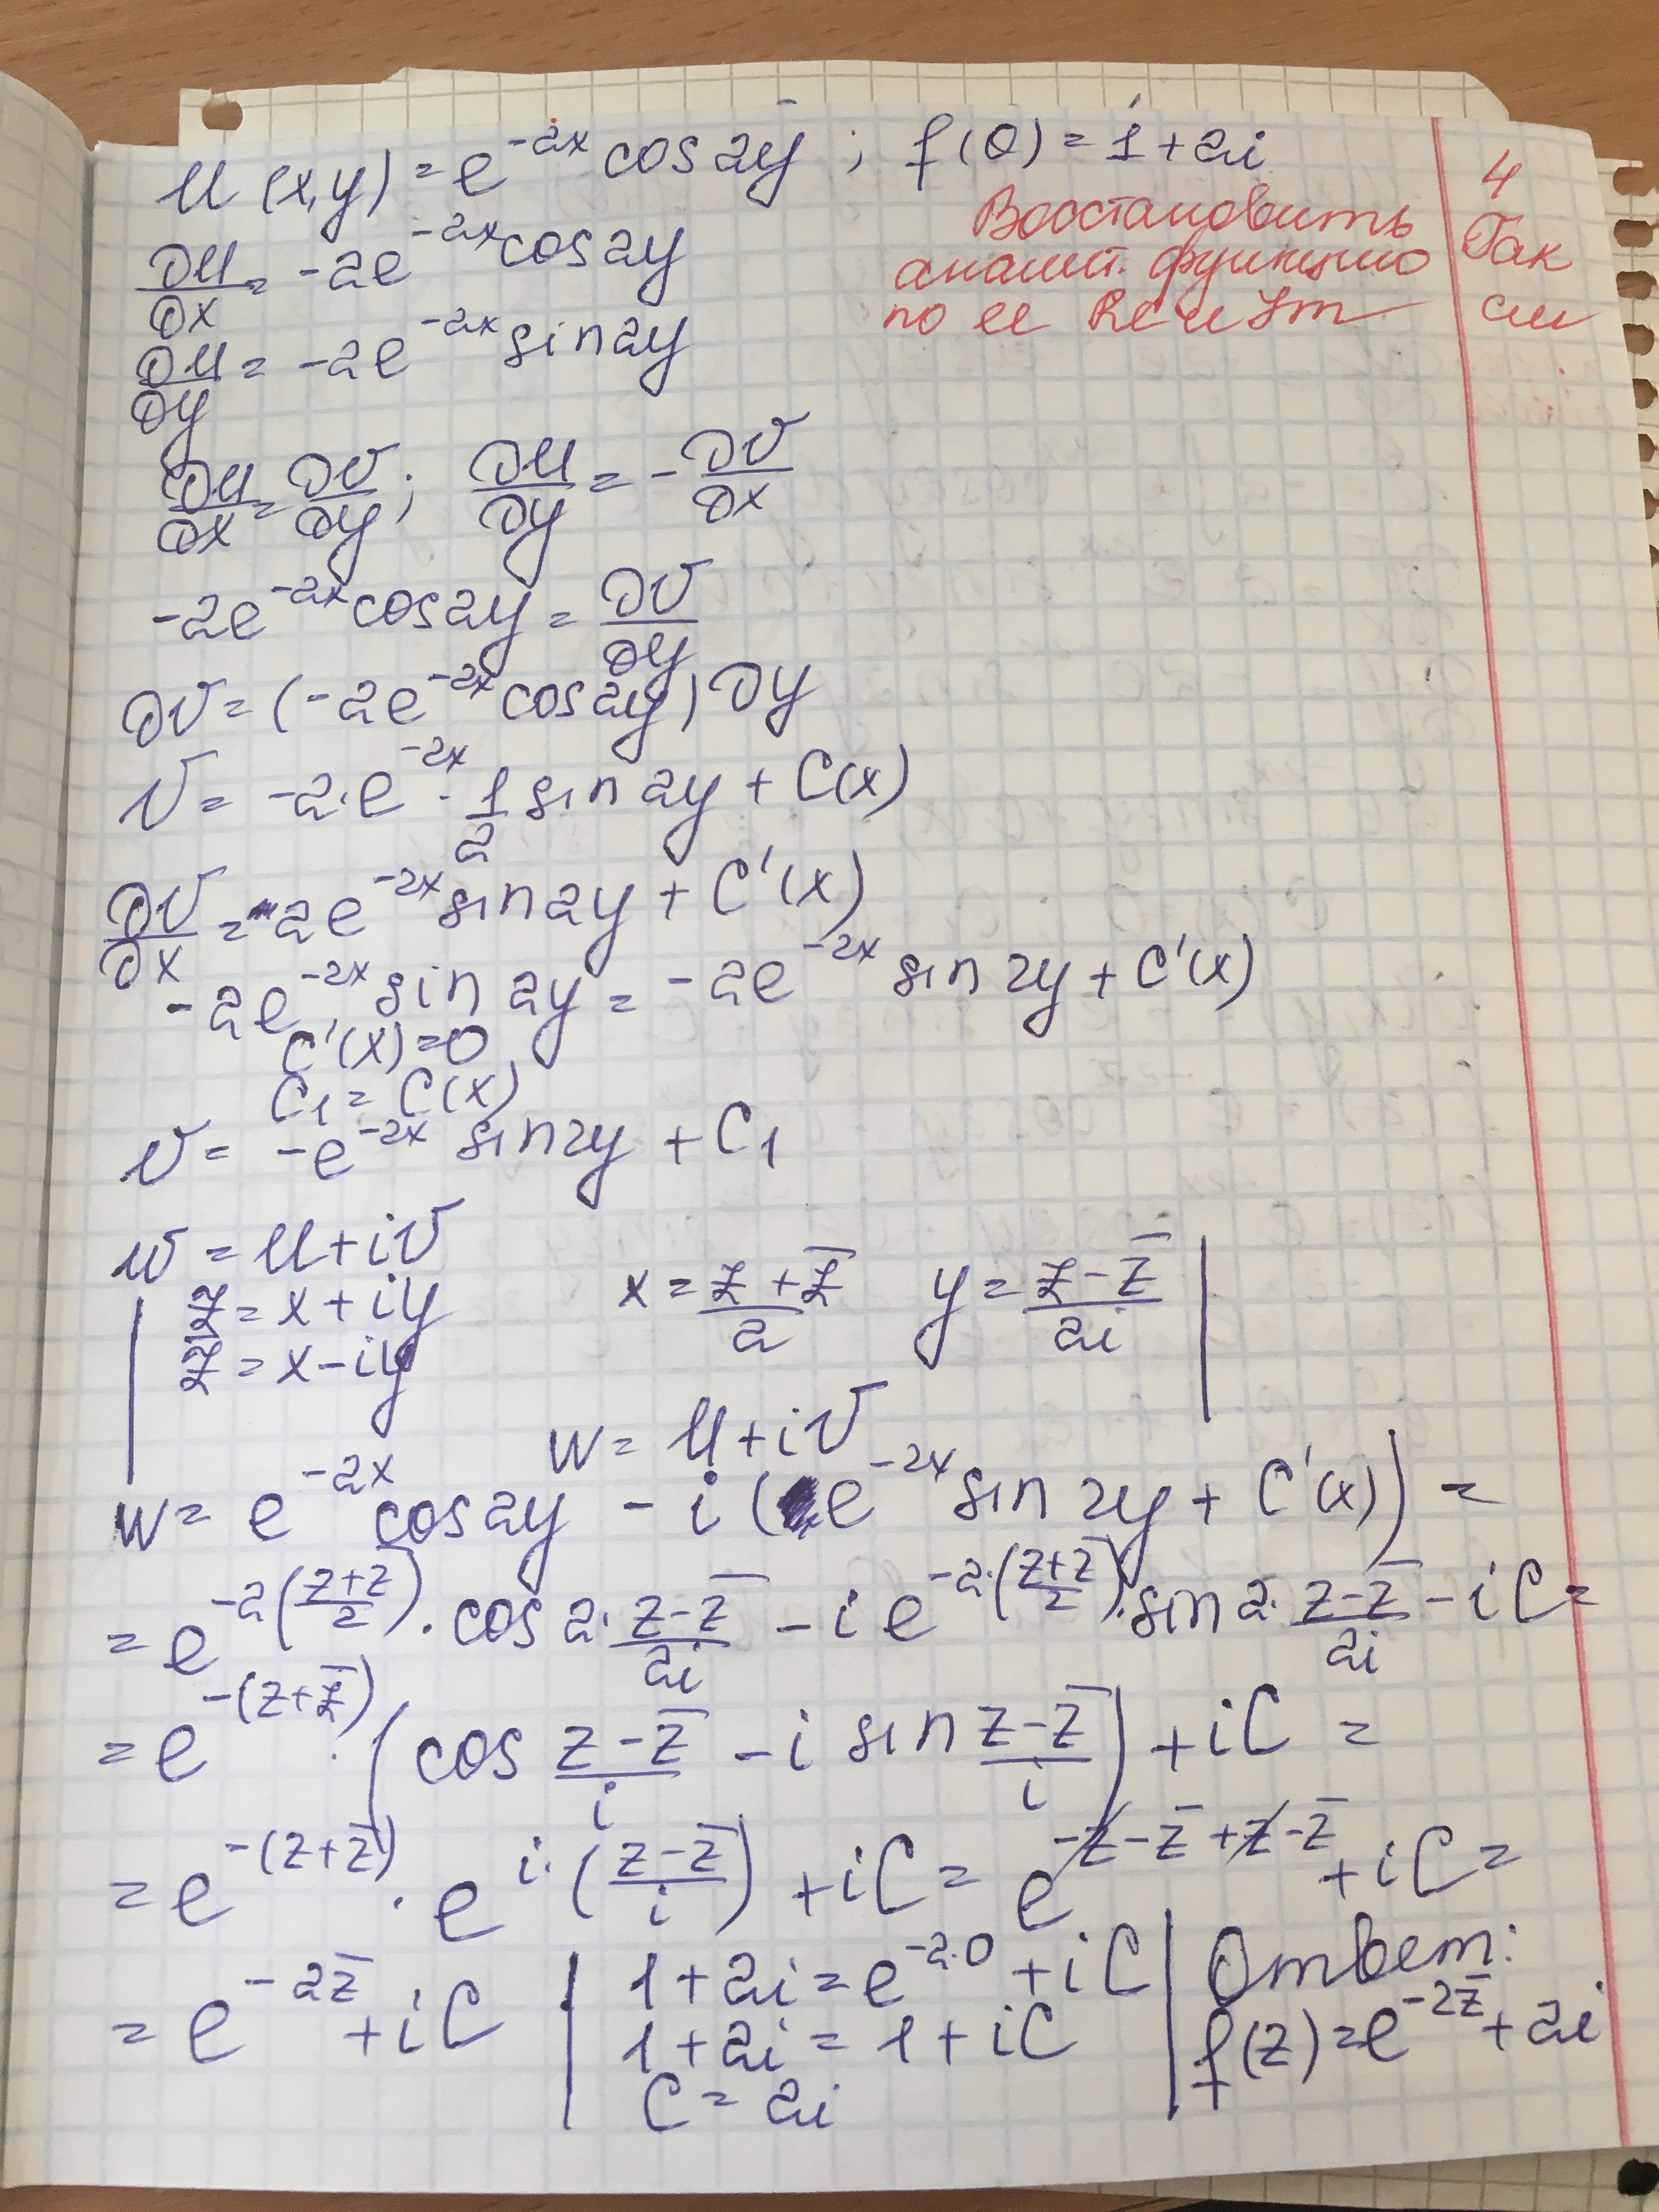 u(x,y) = e^{-2x} cos2y ; f(0) = 1+2i
Восстановить
аналит. функцию
по ее Re и Im
4
Так
см
∂u/∂x = -2e^{-2x} cos2y
∂u/∂y = -2e^{-2x} sin2y
∂u/∂x = ∂v/∂y ; ∂u/∂y = -∂v/∂x
-2e^{-2x} cos2y = ∂v/∂y
∂v = (-2e^{-2x} cos2y) ∂y
v = -2·e^{-2x} · 1/2 sin2y + C(x)
∂v/∂x = 2e^{-2x} sin2y + C'(x)
-2e^{-2x} sin2y = -2e^{-2x} sin2y + C'(x)
C'(x) = 0
C₁ = C(x)
v = -e^{-2x} sin2y + C₁
w = u + iv
z = x + iy
z̄ = x - iy
x = (z + z̄)/2 y = (z - z̄)/2i
w = u + iv
w = e^{-2x} cos2y - i(e^{-2x} sin2y + C'(x)) =
= e^{-2((z+z̄)/2)} · cos2·(z-z̄)/2i - i e^{-2·((z+z̄)/2)} · sin2·(z-z̄)/2i - iC =
= e^{-(z+z̄)} · (cos (z-z̄)/i - i sin (z-z̄)/i) + iC =
= e^{-(z+z̄)} · e^{i·((z-z̄)/i)} + iC = e^{-z-z̄+z-z̄} + iC =
= e^{-2z̄} + iC
1+2i = e^{-2·0} + iC
1+2i = 1+iC
C = 2i
Ответ:
f(z) = e^{-2z̄} + 2i